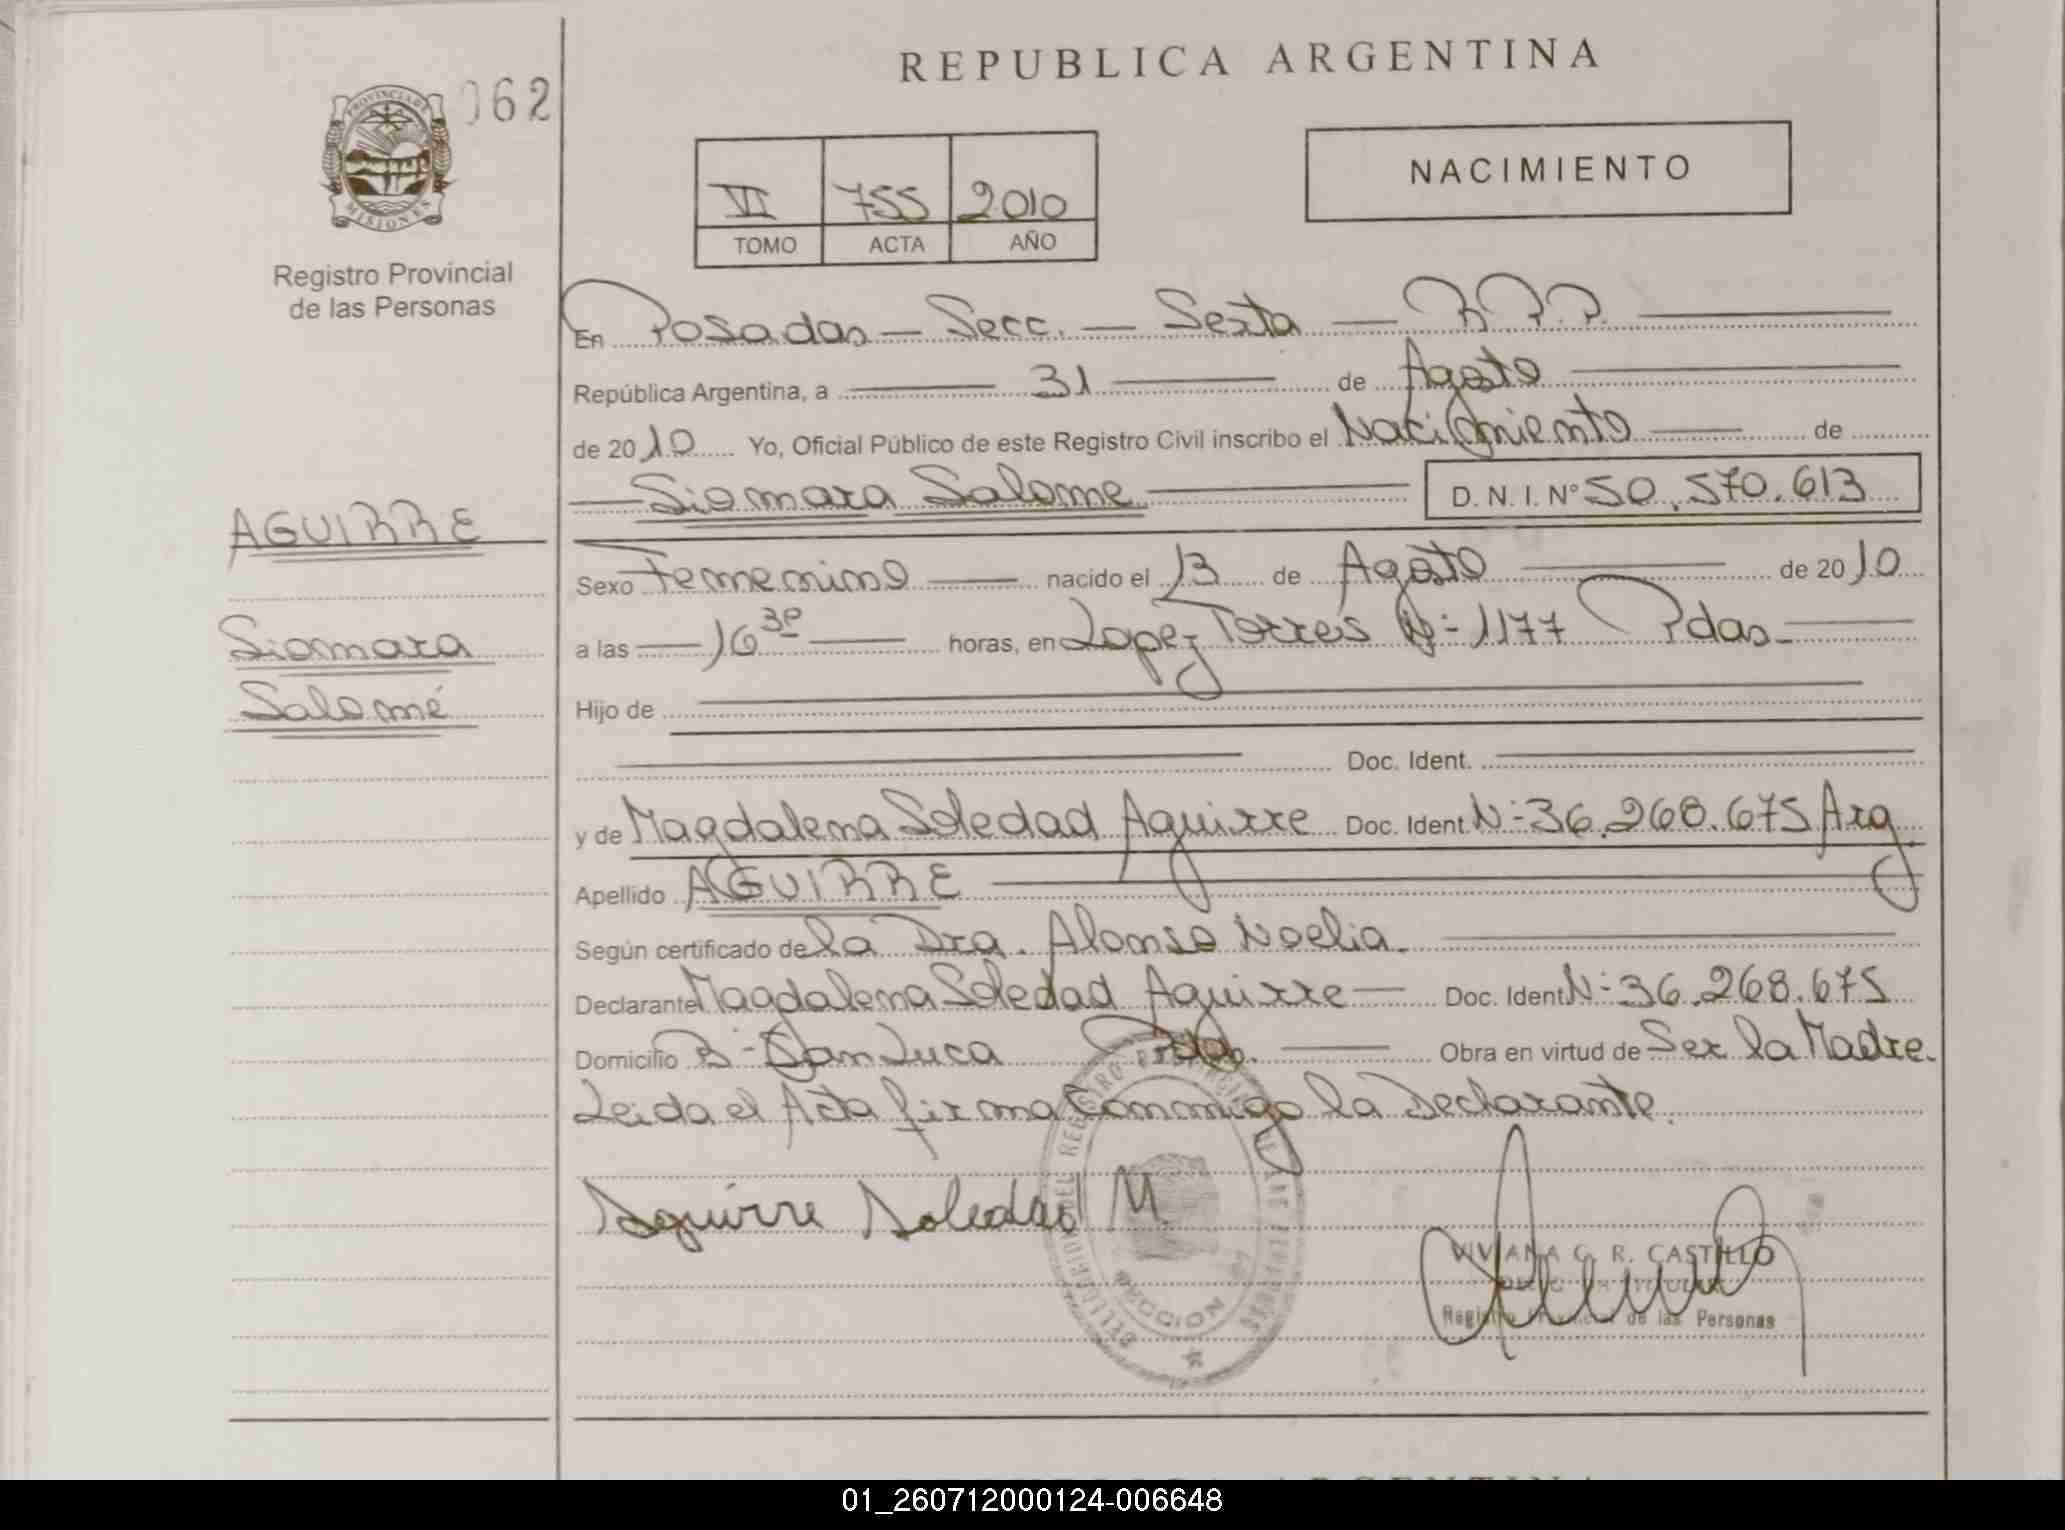 REPUBLICA ARGENTINA
062
PROVINCIA DE
MISIONES
Registro Provincial
de las Personas
VI 755 2010
TOMO ACTA AÑO
NACIMIENTO
En Posadas — Secc. — Sexta — R.P.P.
República Argentina, a 31 de Agosto
de 2010 Yo, Oficial Público de este Registro Civil inscribo el Nacimiento de
Siomara Salome D. N. I. Nº 50.570.613
AGUIRRE
Siomara
Salomé
Sexo Femenino nacido el 13 de Agosto de 2010
a las 16 30 horas, en Lopez Torres Nº 1177 Pdas
Hijo de
Doc. Ident.
y de Magdalena Soledad Aguirre Doc. Ident. Nº 36.268.675 Arg
Apellido AGUIRRE
Según certificado de la Dra. Alonso Noelia.
Declarante Magdalena Soledad Aguirre Doc. Ident. Nº 36.268.675
Domicilio Bº San Luca Pdas. Obra en virtud de Ser la Madre.
Leida el Acta firma Conmigo la Declarante.
Aguirre Soledad M.
VIVIANA C. R. CASTILLO
TITULAR
Registro Provincial de las Personas
SECCION
01_260712000124-006648